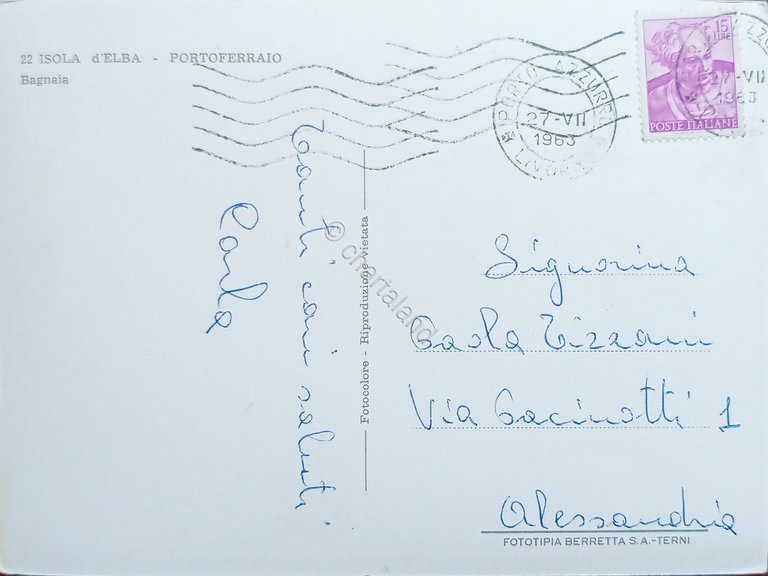 22 ISOLA d'ELBA - PORTOFERRAIO
Bagnaia
PORTO AZZURRO
27-VII
1963
LIVORNO
15
LIRE
POSTE ITALIANE
27-VII
1963
Tanti cari saluti
Carla
Fotocolore - Riproduzione vietata
© chartaland
Signorina
Paola Tizzani
Via Pacinotti 1
Alessandria
FOTOTIPIA BERRETTA S.A.-TERNI